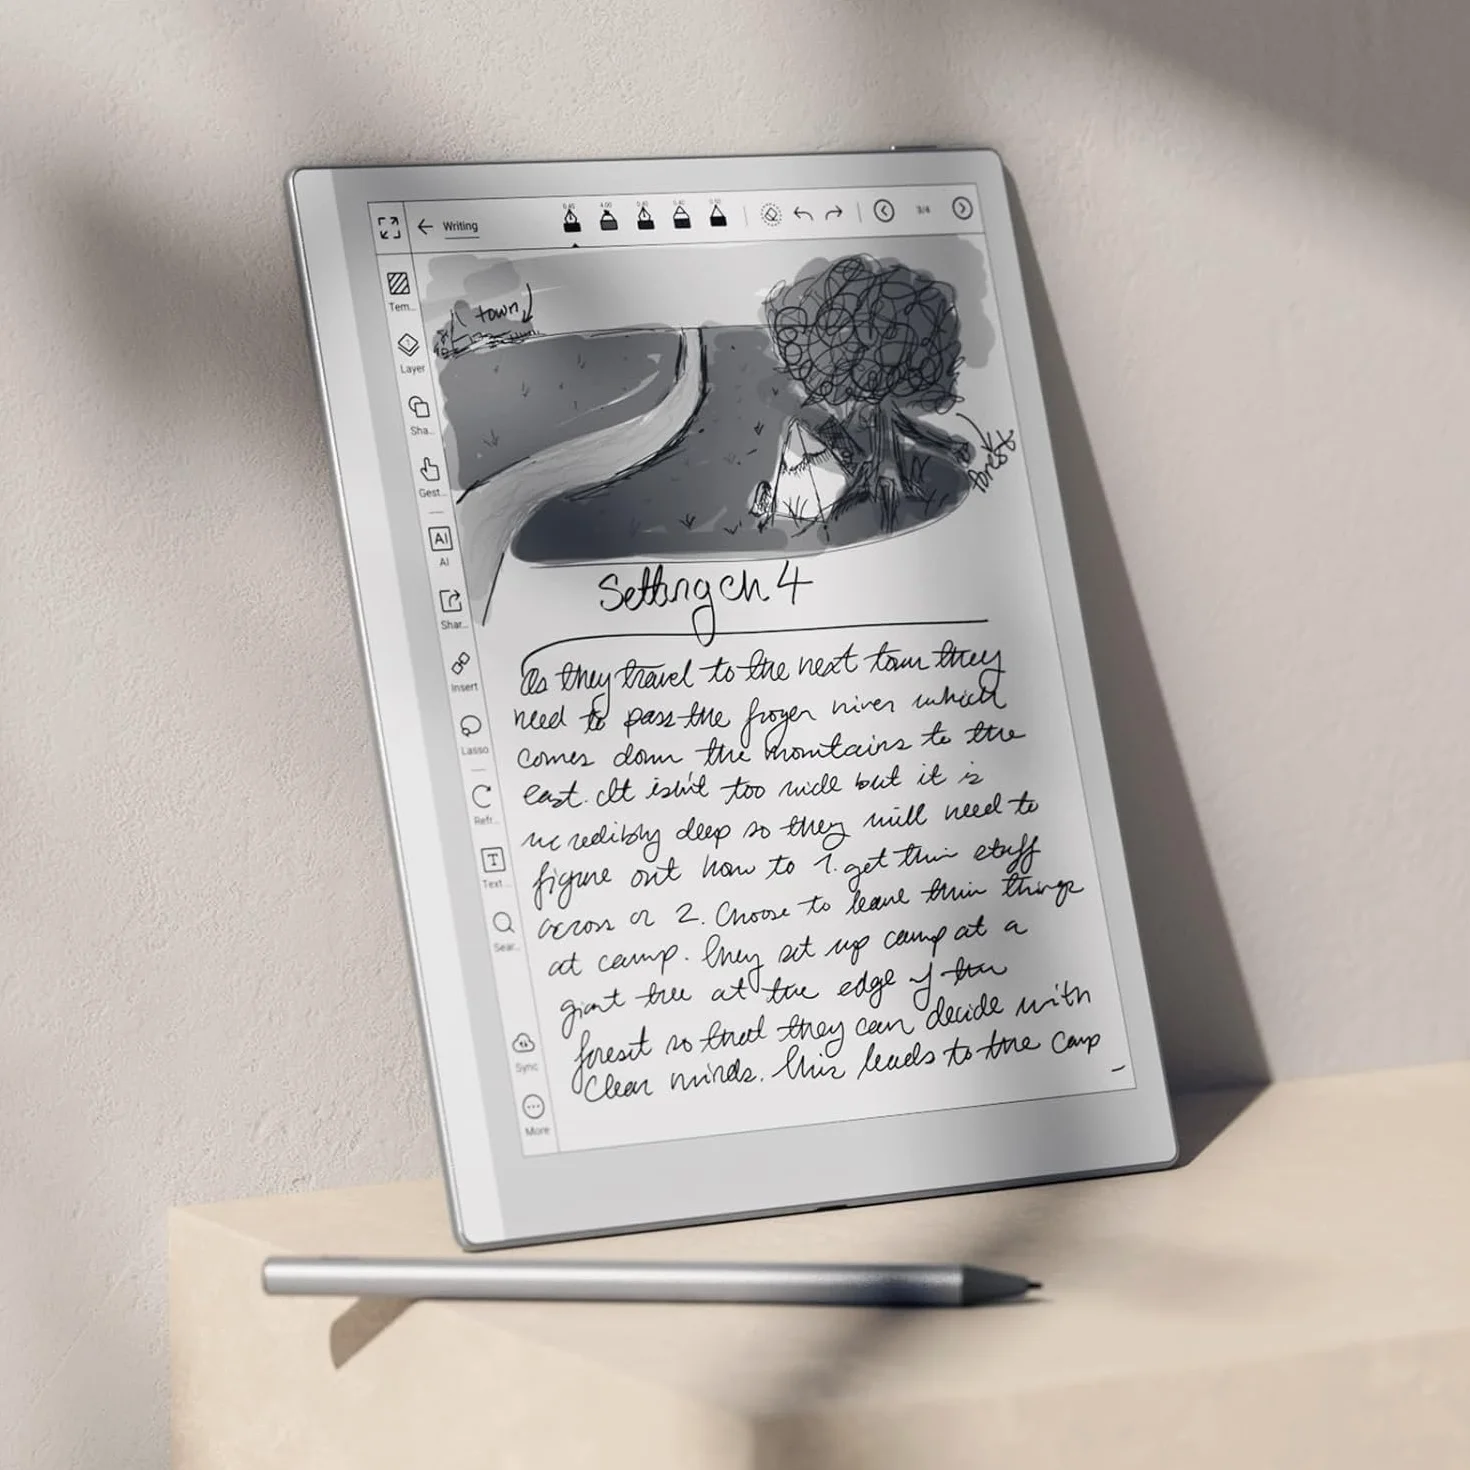 Writing
0.40 4.00 0.40 0.40 0.50
3/4
Tem...
Layer
Sha...
Gest...
AI
AI
Shar...
Insert
Lasso
Refr...
T
Text...
Sear...
Sync
More
town
forest
Setting ch 4
As they travel to the next town they
need to pass the frozen river which
comes down the mountains to the
east. It isn't too wide but it is
incredibly deep so they will need to
figure out how to 1. get their stuff
across or 2. Choose to leave their things
at camp. They set up camp at a
giant tree at the edge of the
forest so that they can decide with
Clear minds. This leads to the camp